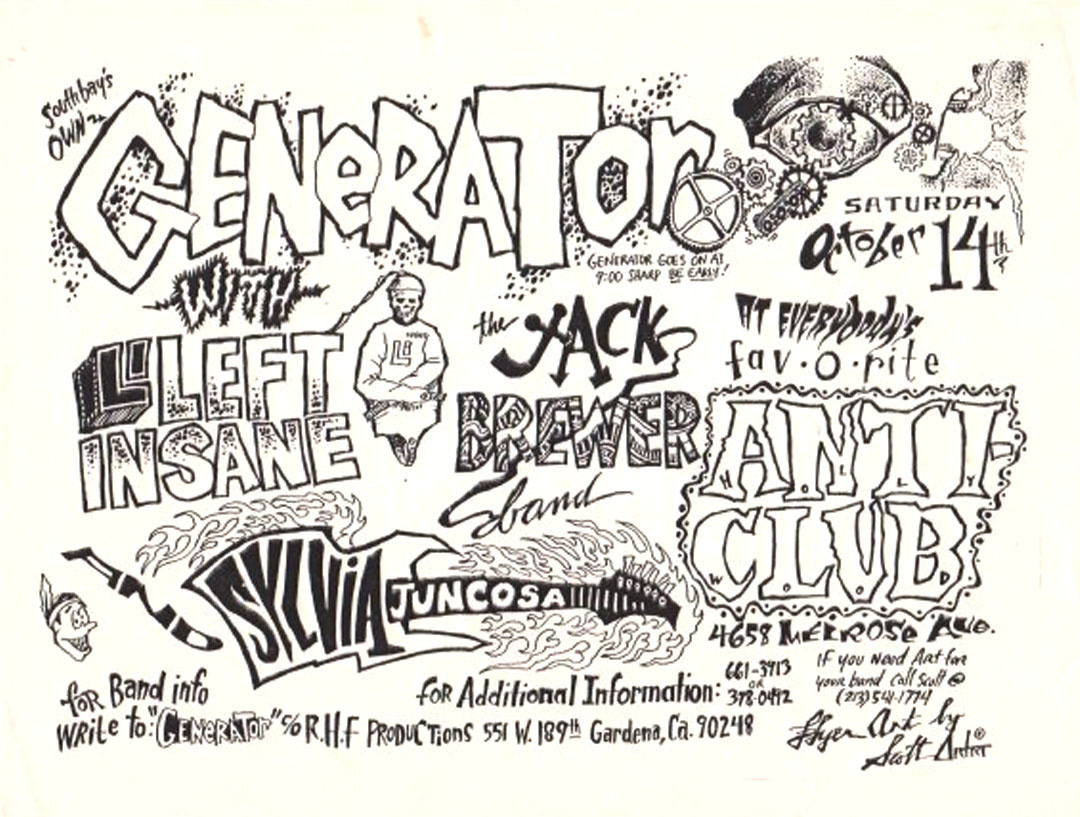 Southbay's
OWN
GENERATOR
GENERATOR GOES ON AT
9:00 SHARP BE EARLY!
SATURDAY
October 14th
WITH
LI LEFT
INSANE
LI
the JACK
BREWER
band
AT EVERYBODY'S
fav·o·rite
ANTI-
CLUB
4658 MELROSE Ave.
AND
SYLVIA JUNCOSA
for Band info
write to: "GENERATOR" c/o R.H.F PRODUCTIONS 551 W. 189th Gardena, Ca. 90248
for Additional Information: 661-3913
OR
378-0492
If you Need Art for
your band call Scott @
(213) 541-1774
Flyer Art by
Scott Artist®